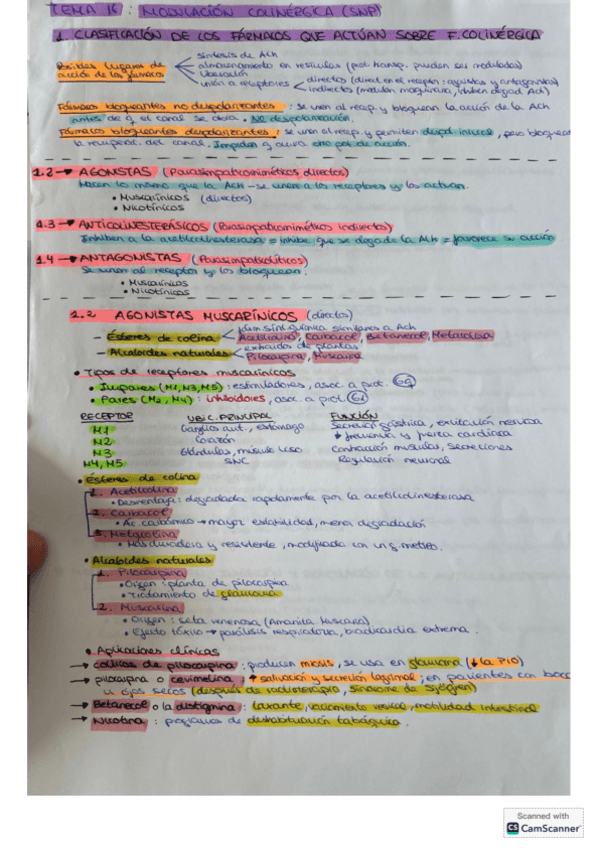 TEMA 16: MODULACIÓN COLINÉRGICA (SNP)
1. CLASIFICACIÓN DE LOS FÁRMACOS QUE ACTÚAN SOBRE F. COLINÉRGICA
síntesis de ACh
Posibles lugares de acción de los fármacos
almacenamiento en vesículas (prot. transp. pueden ser modulados)
liberación
unión a receptores
directos (direct. en el receptor: agonistas y antagonistas)
indirectos (modulan maquinaria, inhiben degrad. ACh)
Fármacos bloqueantes no despolarizantes: se unen al recep. y bloquean la acción de la ACh
antes de q el canal se abra. No despolarización.
Fármacos bloqueantes despolarizantes: se une al recep. y permiten despol. inicial, pero bloquean
la recuperac. del canal. Impiden q ocurra otro pot. de acción.
1.2 → AGONISTAS (Parasimpaticomiméticos directos)
Hacen lo mismo que la ACh - se unen a los receptores y los activan.
• Muscarínicos (directos)
• Nicotínicos
1.3 → ANTICOLINESTERÁSICOS (Parasimpaticomiméticos indirectos)
Inhiben a la acetilcolinesterasa = inhibe que se degrade la ACh = favorece su acción
1.4 → ANTAGONISTAS (Parasimpaticolíticos)
Se unen al receptor y los bloquean.
• Muscarínicos
• Nicotínicos
1.2 AGONISTAS MUSCARÍNICOS (directos)
- Ésteres de colina
similares a Ach
Acetilcolina, Carbacol, Betanecol, Metacolina
- Alcaloides naturales
extraídos de plantas
Pilocarpina, Muscarina
• Tipos de receptores muscarínicos
• Impares (M1, M3, M5): estimuladores, asoc. a prot. Gq
• Pares (M2, M4): inhibidores, asoc. a prot. Gi
RECEPTOR UBIC. PRINCIPAL FUNCIÓN
M1 Ganglios aut., estómago Secreción gástrica, excitación nerviosa
M2 Corazón ↓ frecuencia y fuerza cardiaca
M3 Glándulas, músculo liso Contracción muscular, secreciones
M4, M5 SNC Regulación neuronal
• Ésteres de colina
1. Acetilcolina
• Desventaja: degradada rapidamente por la acetilcolinesterasa
2. Carbacol
• Ac. carbámico → mayor estabilidad, menor degradación
3. Metacolina
• Más duradera y resistente, modificada con un g. metilo.
• Alcaloides naturales
1. Pilocarpina
• Origen: planta de pilocarpina
• Tratamiento de glaucoma
2. Muscarina
• Origen: seta venenosa (Amanita Muscaria)
• Efecto tóxico → parálisis respiratoria, bradicardia extrema.
• Aplicaciones clínicas
→ colirios de pilocarpina: producen miosis, se usa en glaucoma (↓ la PIO)
→ pilocarpina o cevimelina: ↑ salivación y secreción lagrimal; en pacientes con boca
u ojos secos (después de radioterapia, síndrome de Sjögren)
→ Betanecol o la distigmina: laxante, vaciamiento vesical, motilidad intestinal
→ Nicotina: programas de deshabituación tabáquica.
Scanned with
CS CamScanner